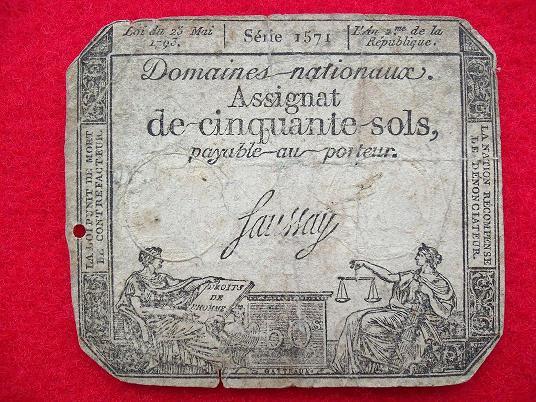 Loi du 23 Mai
1793.
Série 1571
L'An 2.me de la
République.
Domaines nationaux.
Assignat
de cinquante sols,
payable au porteur.
LA LOI PUNIT DE MORT
LE CONTREFACTEUR.
LA NATION RECOMPENSE
LE DENONCIATEUR.
Saussay
DROITS
DE
L'HOMME